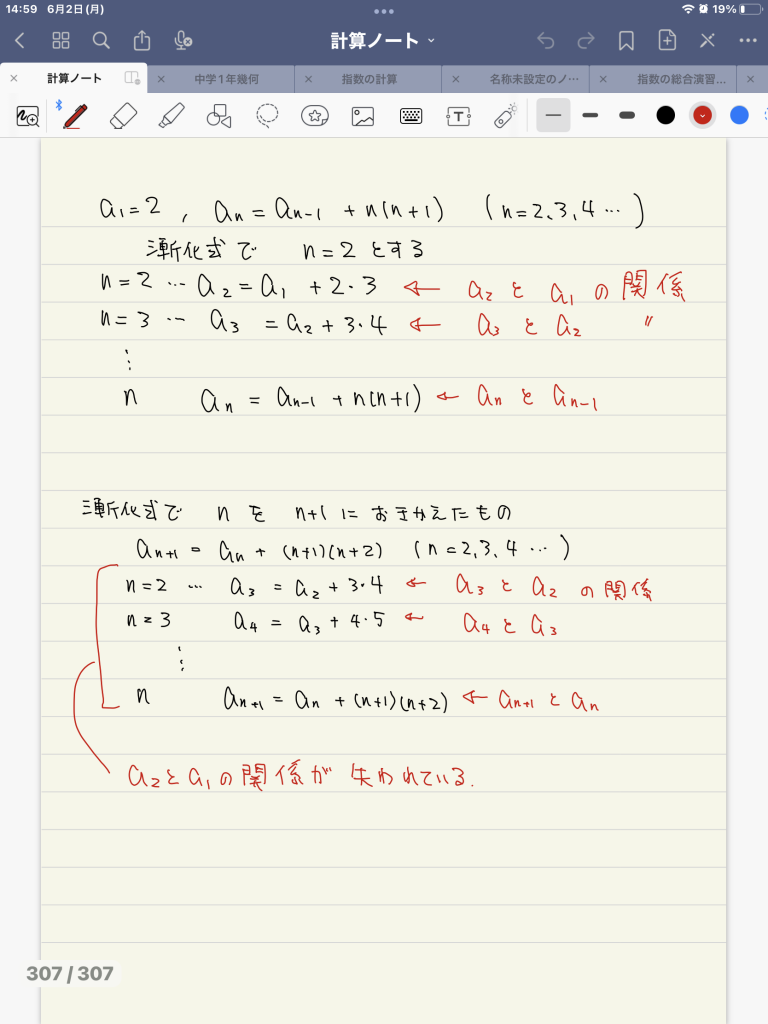 14:59 6月2日(月)
19%
計算ノート
計算ノート
中学1年幾何
指数の計算
名称未設定のノ…
指数の総合演習…
a₁=2 , aₙ=aₙ₋₁ +n(n+1) (n=2,3,4 …)
漸化式で n=2 とする
n=2 … a₂=a₁ +2·3 ← a₂ と a₁ の 関係
n=3 … a₃ =a₂+3·4 ← a₃ と a₂ 〃
⋮
n aₙ = aₙ₋₁ +n(n+1) ← aₙ と aₙ₋₁
漸化式で n を n+1 に おきかえたもの
aₙ₊₁ = aₙ + (n+1)(n+2) (n=2,3,4 …)
n=2 … a₃ = a₂+3·4 ← a₃ と a₂ の 関係
n=3 a₄ = a₃+4·5 ← a₄ と a₃
⋮
n aₙ₊₁ = aₙ +(n+1)(n+2) ← aₙ₊₁ と aₙ
a₂とa₁の関係が 失われている.
307 / 307